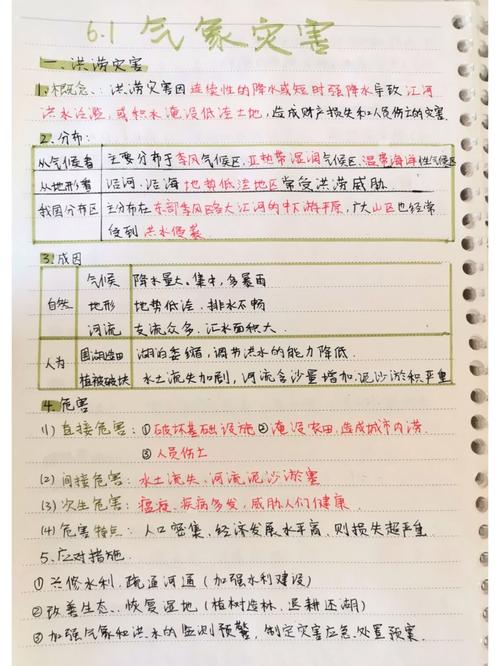 6.1 气象灾害
一、洪涝灾害
1.概念：洪涝灾害因连续性的降水或短时强降水导致江河
洪水泛滥，或积水淹没低洼土地，造成财产损失和人员伤亡的灾害.
2.分布：
从气候看 主要分布于季风气候区，亚热带湿润气候区，温带海洋性气候区
从地形看 沿河、沿海地势低洼地区常受洪涝威胁.
我国分布区 主分布在东部季风区各大江河的中下游平原，广大山区也经常
受到洪水侵袭
3.成因
自然 气候 降水量大、集中，多暴雨
地形 地势低洼、排水不畅
河流 支流众多、汇水面积大.
人为 围湖造田 湖泊萎缩，调节洪水的能力降低.
植被破坏 水土流失加剧，河流含沙量增加，泥沙淤积严重
4.危害
(1)直接危害：①破坏基础设施②淹没农田、造成城市内涝.
③人员伤亡
(2)间接危害：水土流失、河流泥沙淤害
(3)次生危害：瘟疫、疾病多发，威胁人们健康
(4)危害特点：人口密集、经济发展水平高、则损失超严重.
5.应对措施.
①兴修水利、疏通河通（加强水利建设）
②改善生态、恢复湿地（植树造林、退耕还湖）
③加强气象和洪水的监测预警，制定灾害应急处置预案.